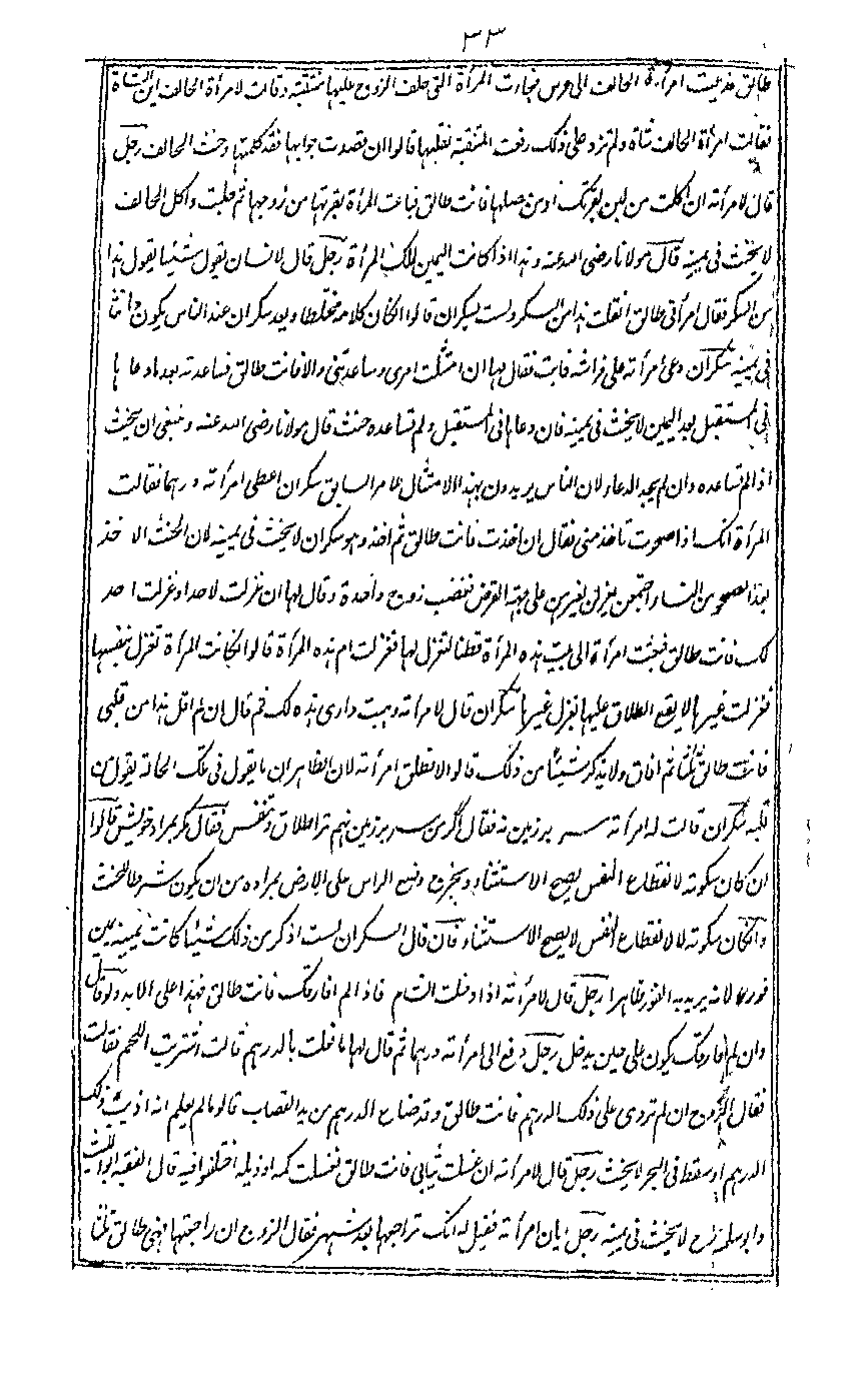 ٣٣
طالق فذهبت امرأة الحالف الى عرس فجاءت المرأة التى حلف الزوج عليها متنقبة وقالت لامرأة الحالف اين الشاة
فقالت امرأة الحالف شاة ولم تزد على ذلك رفعت المتنقبة نقابها قالوا ان قصدت جوابها فقد كلمتها وحنث الحالف رجل
قال لامرأته ان اكلت من لبن بقرتك او من حصلها فانت طالق فباعت المرأة بقرتها من زوجها ثم حلبت واكل الحالف
لا يحنث فى يمينه قال مولانا رضى الله عنه وهذا اذا كانت اليمين لملك المرأة رجل قال لانسان يقول شيئا يقول هذا
من السكر فقال امرأتى طالق ان قلت هذا من السكر ولست بسكران قالوا ان كان كلامه مختلطا ويعد سكران عند الناس يكون حانثا
فى يمينه سكران دعى امرأته على فراشه فابت فقال لها ان امتثلت امرى وساعدتنى والا فانت طالق فساعدته بعدما دعاها
فى المستقبل بعد اليمين لا يحنث فى يمينه فان دعاها فى المستقبل ولم تساعده حنث قال مولانا رضى الله عنه وينبغى ان يحنث
اذا لم تساعده وان لم يجدد الدعاء لان الناس يريدون بهذا الامتثال للامر السابق سكران اعطى امرأته درهما فقالت
المرأة انك اذا صحوت تأخذ منى فقال ان اخذت فانت طالق ثم اخذ وهو سكران لا يحنث فى يمينه لان الحنث الاخذ
بعد الصحو من النساء اجتمعن يغزلن لغيرهن على جهة القرض فغضب زوج واحدة وقال لها ان غزلت لاحد او غزلت احد
لك فانت طالق فبعثت امرأة الى بيت هذه المرأة قطنا لتغزل لها فغزلت ام هذه المرأة قالوا ان كانت المرأة تغزل بنفسها
فغزلت غيرها لا يقع الطلاق عليها بغزل غيرها سكران قال لامرأته وهبت دارى هذه لك ثم قال ان لم اقل هذا من قلبى
فانت طالق ثلثا ثم افاق ولا يذكر شيئا من ذلك قالوا لا تطلق امرأته لان الظاهر ان ما يقول فى تلك الحالة يقول من
قلبه سكران قالت له امرأته سر برزمين نه فقال اگر من سر برزمين نهم ترا طلاق وتنفس فقال مگر بمراد خويش قالوا
ان كان سكوته لانقطاع النفس يصح الاستثناء ويخرج وضع الراس على الارض بمراده من ان يكون شرطا للحنث
وان كان سكوته لا لانقطاع النفس لا يصح الاستثناء فان قال السكران لست اذكر من ذلك شيئا كانت يمينه يمين
فور كلانه يريد به الفور ظاهرا رجل قال لامرأته اذا دخلت الشام فاذا لم افارقك فانت طالق فهذا على الابد ولو قال
وان لم افارقك يكون على حين يدخل رجل دفع الى امرأته درهما ثم قال لها ما فعلت بالدرهم قالت اشتريت اللحم فقالت
فقال الزوج ان لم تردى على ذلك الدرهم فانت طالق وقد ضاع الدرهم من يد القصاب قالوا ما لم يعلم انه اذيب ذلك
الدرهم او سقط فى البحر لا يحنث رجل قال لامرأته ان غسلت ثيابى فانت طالق فغسلت كمه او ذيله اختلفوا فيه قال الفقيه ابو الليث
وابو سلمة رح لا يحنث فى يمينه رجل ابان امرأته فقيل له انك تراجعها بعد شهر فقال الزوج ان راجعتها فهى طالق ثلثا